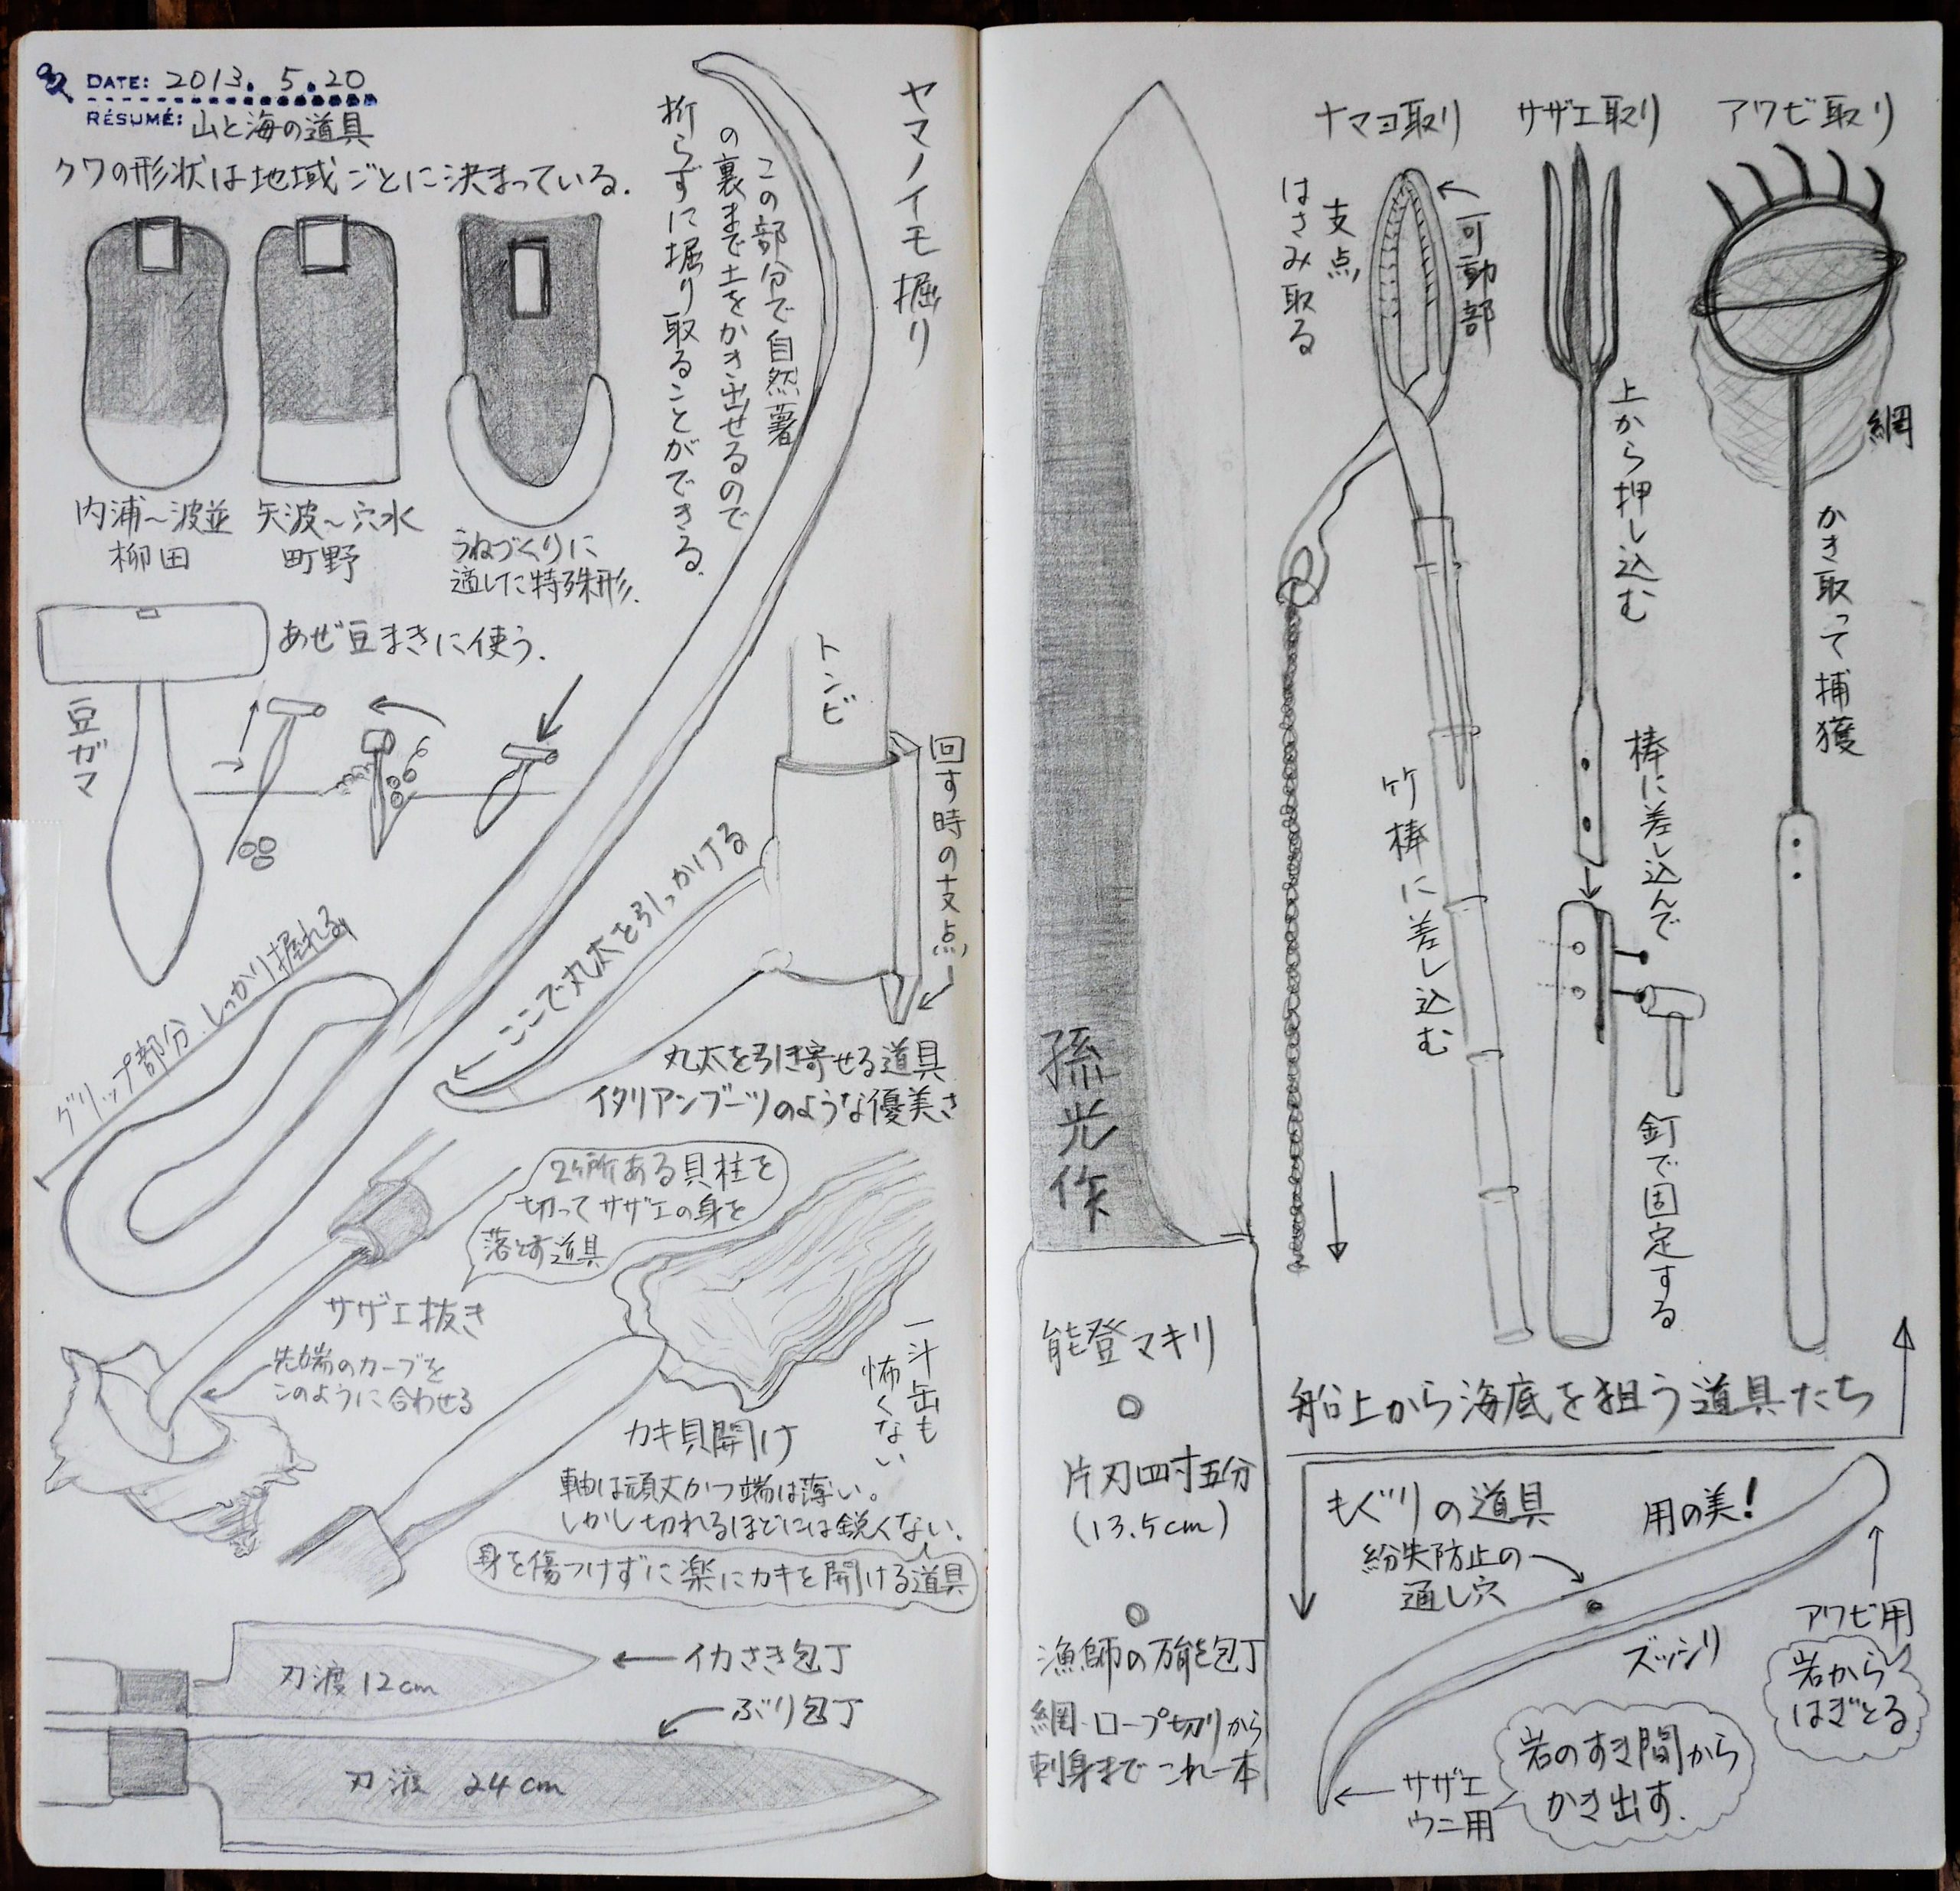 DATE: 2013. 5. 20
RÉSUMÉ: 山と海の道具
クワの形状は地域ごとに決まっている.
内浦～波並
柳田
矢波～穴水
町野
うねづくりに
適した特殊形.
ヤマノイモ掘り
この部分で自然薯
の裏まで土をかき出せるので
折らずに掘り取ることができる.
あぜ豆まきに使う.
豆ガマ
トンビ
回す時の支点
ここで丸太を引っかける
丸太を引き寄せる道具
イタリアンブーツのような優美さ
グリップ部分.しっかり握れる
2ヶ所ある貝柱を
切ってサザエの身を
落とす道具
サザエ抜き
先端のカーブを
このように合わせる
一斗缶も
怖くない
カキ貝開け
軸は頑丈かつ端は薄い。
しかし切れるほどには鋭くない.
身を傷つけずに楽にカキを開ける道具
イカさき包丁
刃渡12cm
ぶり包丁
刃渡 24cm
孫光作
能登マキリ
片刃四寸五分
(13.5cm)
漁師の万能包丁
網・ロープ切りから
刺身まで これ一本
ナマコ取り
可動部
支点
はさみ取る
竹棒に差し込む
サザエ取り
上から押し込む
棒に差し込んで
釘で固定する
アワビ取り
網
かき取って捕獲
船上から海底を狙う道具たち
もぐりの道具
用の美!
紛失防止の
通し穴
ズッシリ
アワビ用
岩から
はぎとる
サザエ
ウニ用
岩のすき間から
かき出す.